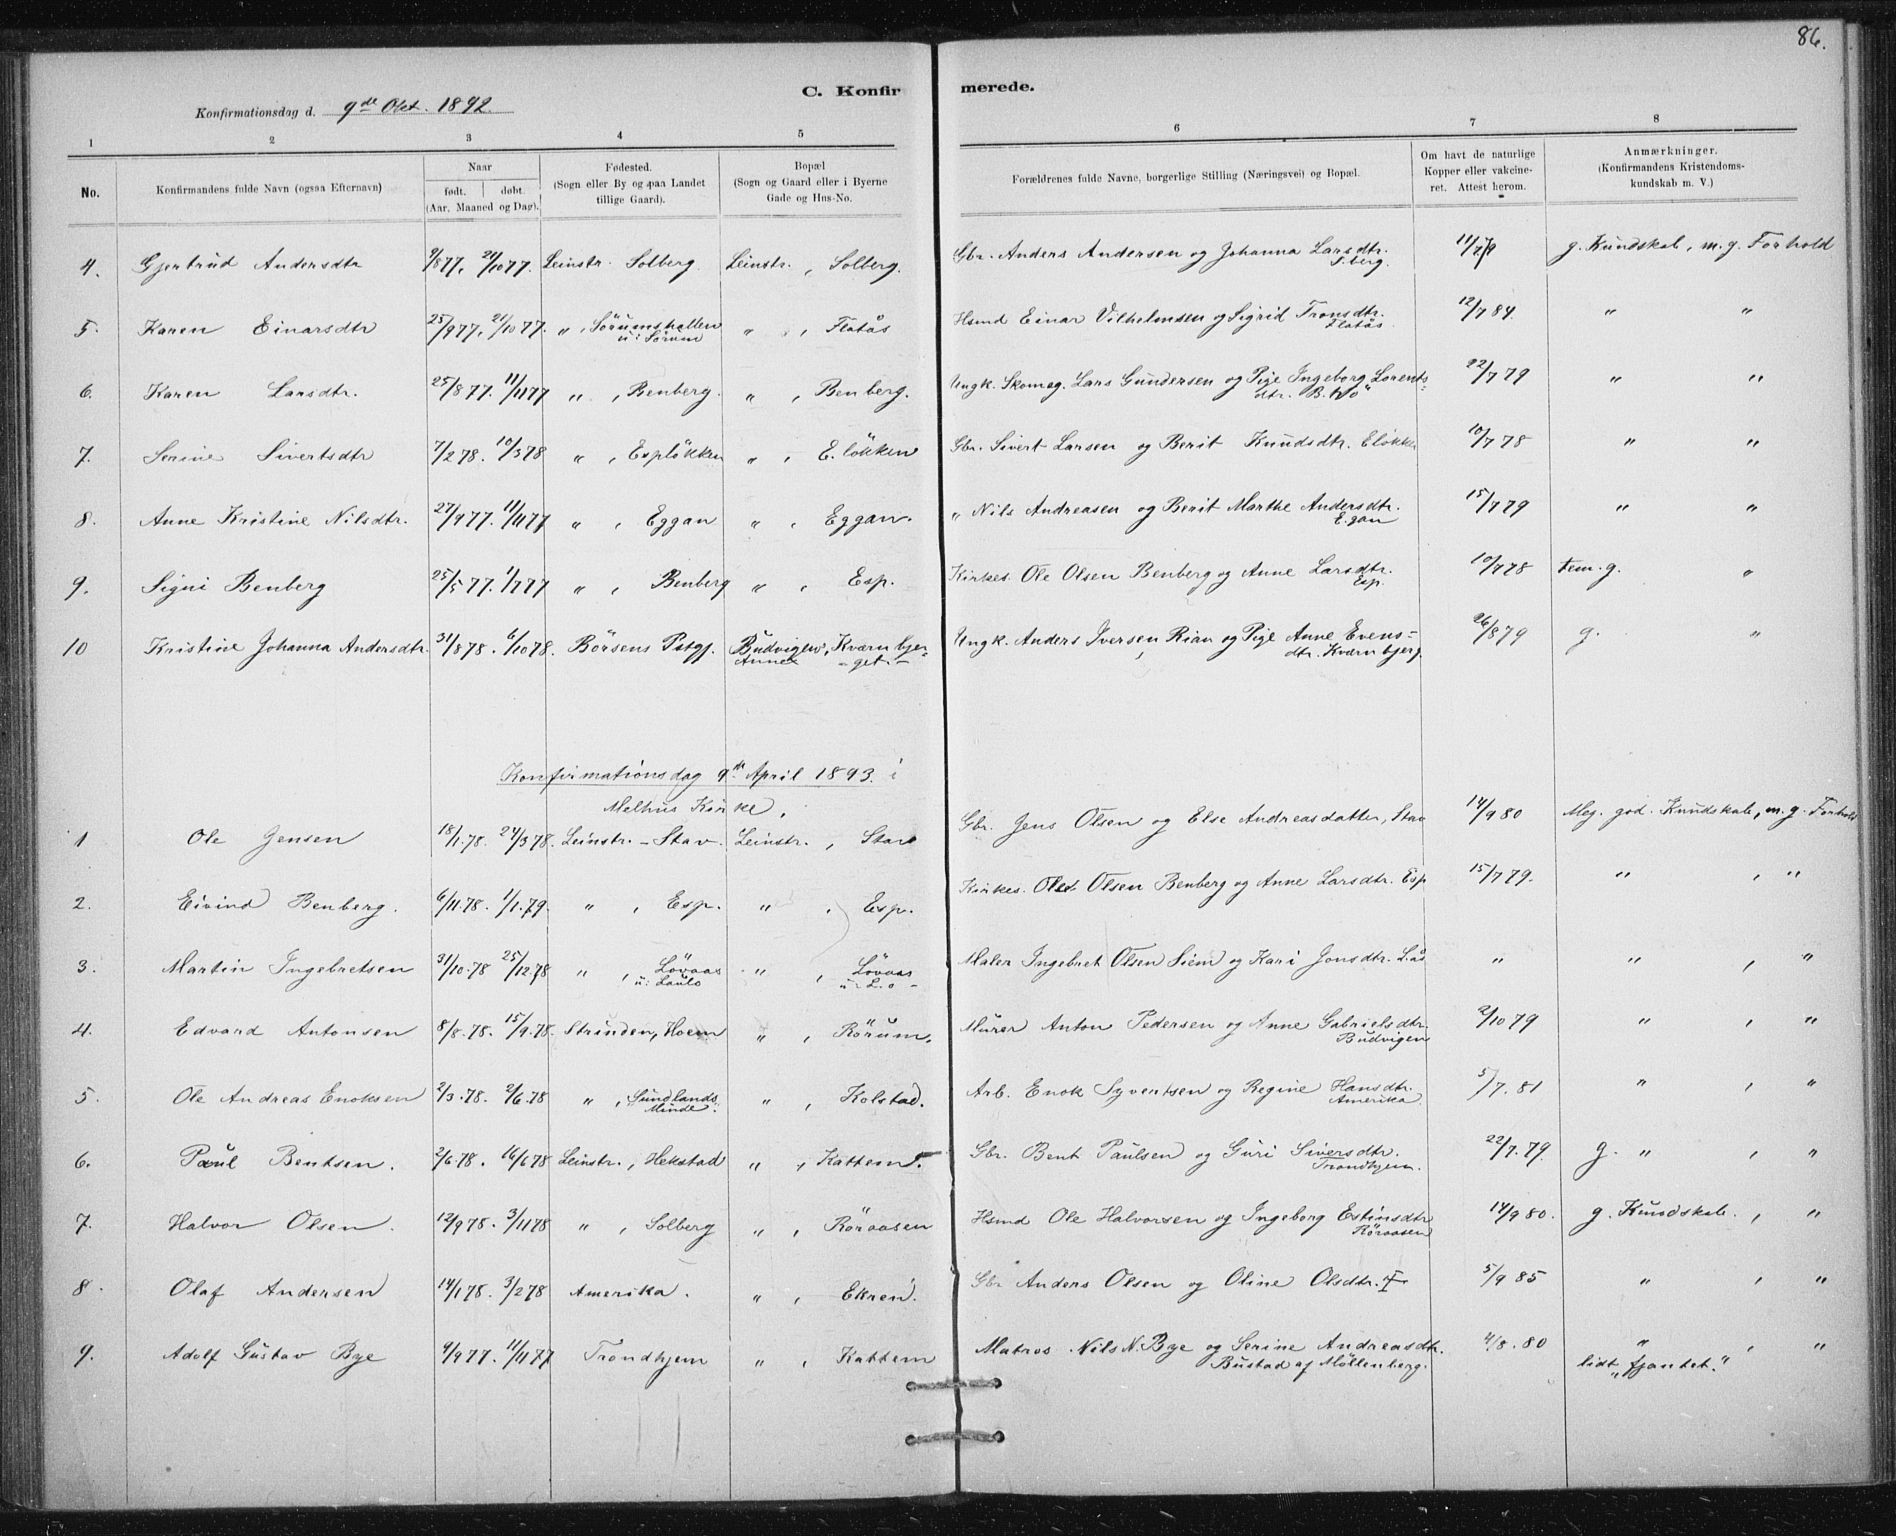 86.
C. Konfirmerede.
Konfirmationsdag d. 9de Okt. 1892.
1 2 3 4 5 6 7 8
No. Konfirmandens fulde Navn (ogsaa Efternavn) Naar født. døbt. (Aar, Maaned og Dag). Fødested. (Sogn eller By og paa Landet tillige Gaard). Bopæl (Sogn og Gaard eller i Byerne Gade og Hus-No. Forældrenes fulde Navne, borgerlige Stilling (Næringsvei) og Bopæl. Om havt de naturlige Kopper eller vakcineret. Attest herom. Anmærkninger. (Konfirmandens Kristendomskundskab m. V.)
4. Gjertrud Andersdtr 9/8 77. 21/10 77. Leinstr. Solberg. Leinstr., Solberg. Gbr. Anders Andersen og Johanna Larsdtr. S.berg. g. Kundskab, m. g. Forhold
5. Karen Einarsdtr 25/9 77. 21/10 77. „ , Sörumshallen u: Sörum „ , Flatås Hsmd Einar Vilhelmsen og Sigrid Tronsdtr. Flatås. 12/7 84. „ „
6. Karen Larsdtr. 25/8 77. 11/11 77 „ , Benberg. „ , Benberg. Ungk. Skomag. Lars Gundersen og Pige Ingeborg Lorentsdtr. 22/7 79 „ „
7. Serine Sivertsdtr 7/2 78. 10/3 78 „ , Esplökken „ , E.lökken Gbr. Sivert Larsen og Berit Knudsdtr. Elökke 10/7 78 „ „
8. Anne Kristine Nilsdtr. 27/9 77. 11/11 77 „ , Eggan „ , Eggan. „ Nils Andreasen og Berit Marthe Andersdtr. E.gan 15/7 79 „ „
9. Signi Benberg 25/5 77. 1/7 77 „ , Benberg „ , Esp. Kirkes. Ole Olsen Benberg og Anne Larsdtr. Esp. 10/7 78 tem. g. „
10 Kristine Johanna Andersdtr. 31/8 78. 6/10 78. Börsens Pstgj. Budvigens Annex, Kværnbjerget. Ungk. Anders Iversen Rian og Pige Anne Evensdtr. Kværnbjerg. 26/8 79 g. „
Konfirmationsdag 9de April 1893. i
Melhus Kirke.
1 Ole Jensen 18/1 78. 24/3 78. Leinstr. - Stav. Leinstr., Stav Gbr. Jens Olsen og Else Andreasdatter, Stav 14/9 80 Meg. god. Kundskab, m. g. Forhold
2. Eivind Benberg. 6/11 78. 1/1 79. „ , Esp. „ , Esp. Kirkes. Ole Olsen Benberg og Anne Larsdtr. Esp 15/7 79. „ , „
3. Martin Ingebretsen 31/10 78 25/12 78 „ , Lövaas u: Laulo „ , Lövaas u: L.o Maler Ingebret Olsen Siem og Kari Jonsdtr. L.ås „ „ , „
4. Edvard Antonsen 8/8 78. 15/9 78. Strinden, Hoem „ , Rörum. Murer Anton Pedersen og Anne Gabrielsdtr. Budvigen 2/10 79 „ , „
5. Ole Andreas Enoksen 2/3 78. 2/6 78 „ , Sundlands Minde. „ , Kolstad. Arb. Enok Syvertsen og Regine Hansdtr. Amerika. 5/7. 81 „ , „
6. Paul Bentsen. 2/6 78. 16/6 78 Leinstr., Hekstad „ , Kattem. Gbr. Bent Paulsen og Guri Siversdtr. Trondhjem. 22/7. 79. g. „ , „
7. Halvor Olsen. 12/9 78. 3/11 78 „ , Solberg „ , Röraasen Hsmd Ole Halvorsen og Ingeborg Estinsdtr Röraasen 14/9 80. g. Kundskab. , „
8. Olaf Andersen 14/1 78. 3/2 78 Amerika. „ , Ekren. Gbr Anders Olsen og Oline Olsdtr. 5/9 85 „ , „
9. Adolf Gustav Bye 9/9 77. 11/11 77 Trondhjem „ , Kattem Matros Nils N. Bye og Serine Andreasdtr. Bustad af Möllenberg. 4/8. 80 „ , „
lidt „fjantet.“